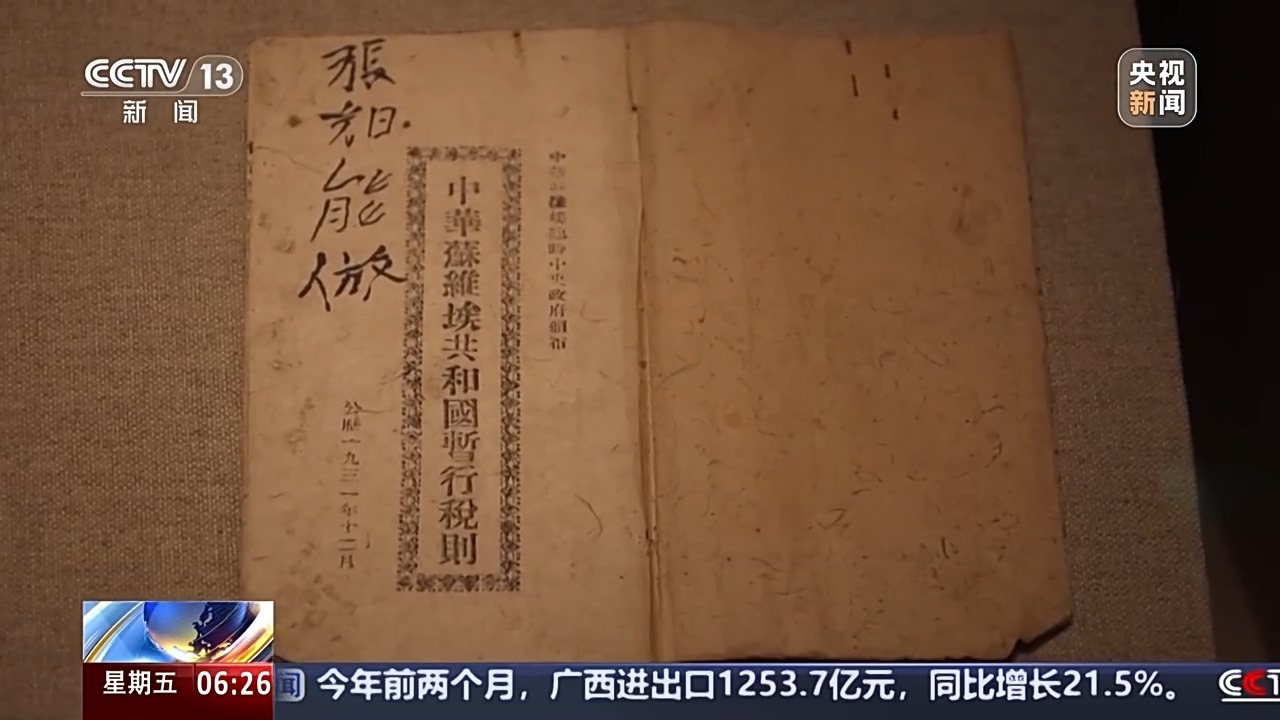 CCTV 13
新闻
央视
新闻
中華蘇維埃臨時中央政府頒布
中華蘇維埃共和國暫行稅則
張
能
公歷一九三一年十二月
星期五 06:26
闻 今年前两个月，广西进出口1253.7亿元，同比增长21.5%。